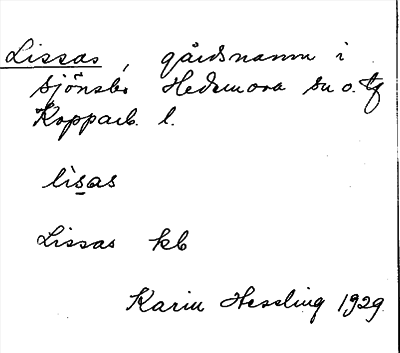 Lissas, gårdsnamn i
Sjönsbo Hedemora sn o. tg
Kopparb. l.
lìsas
Lissas kb
Karin Hessling 1929